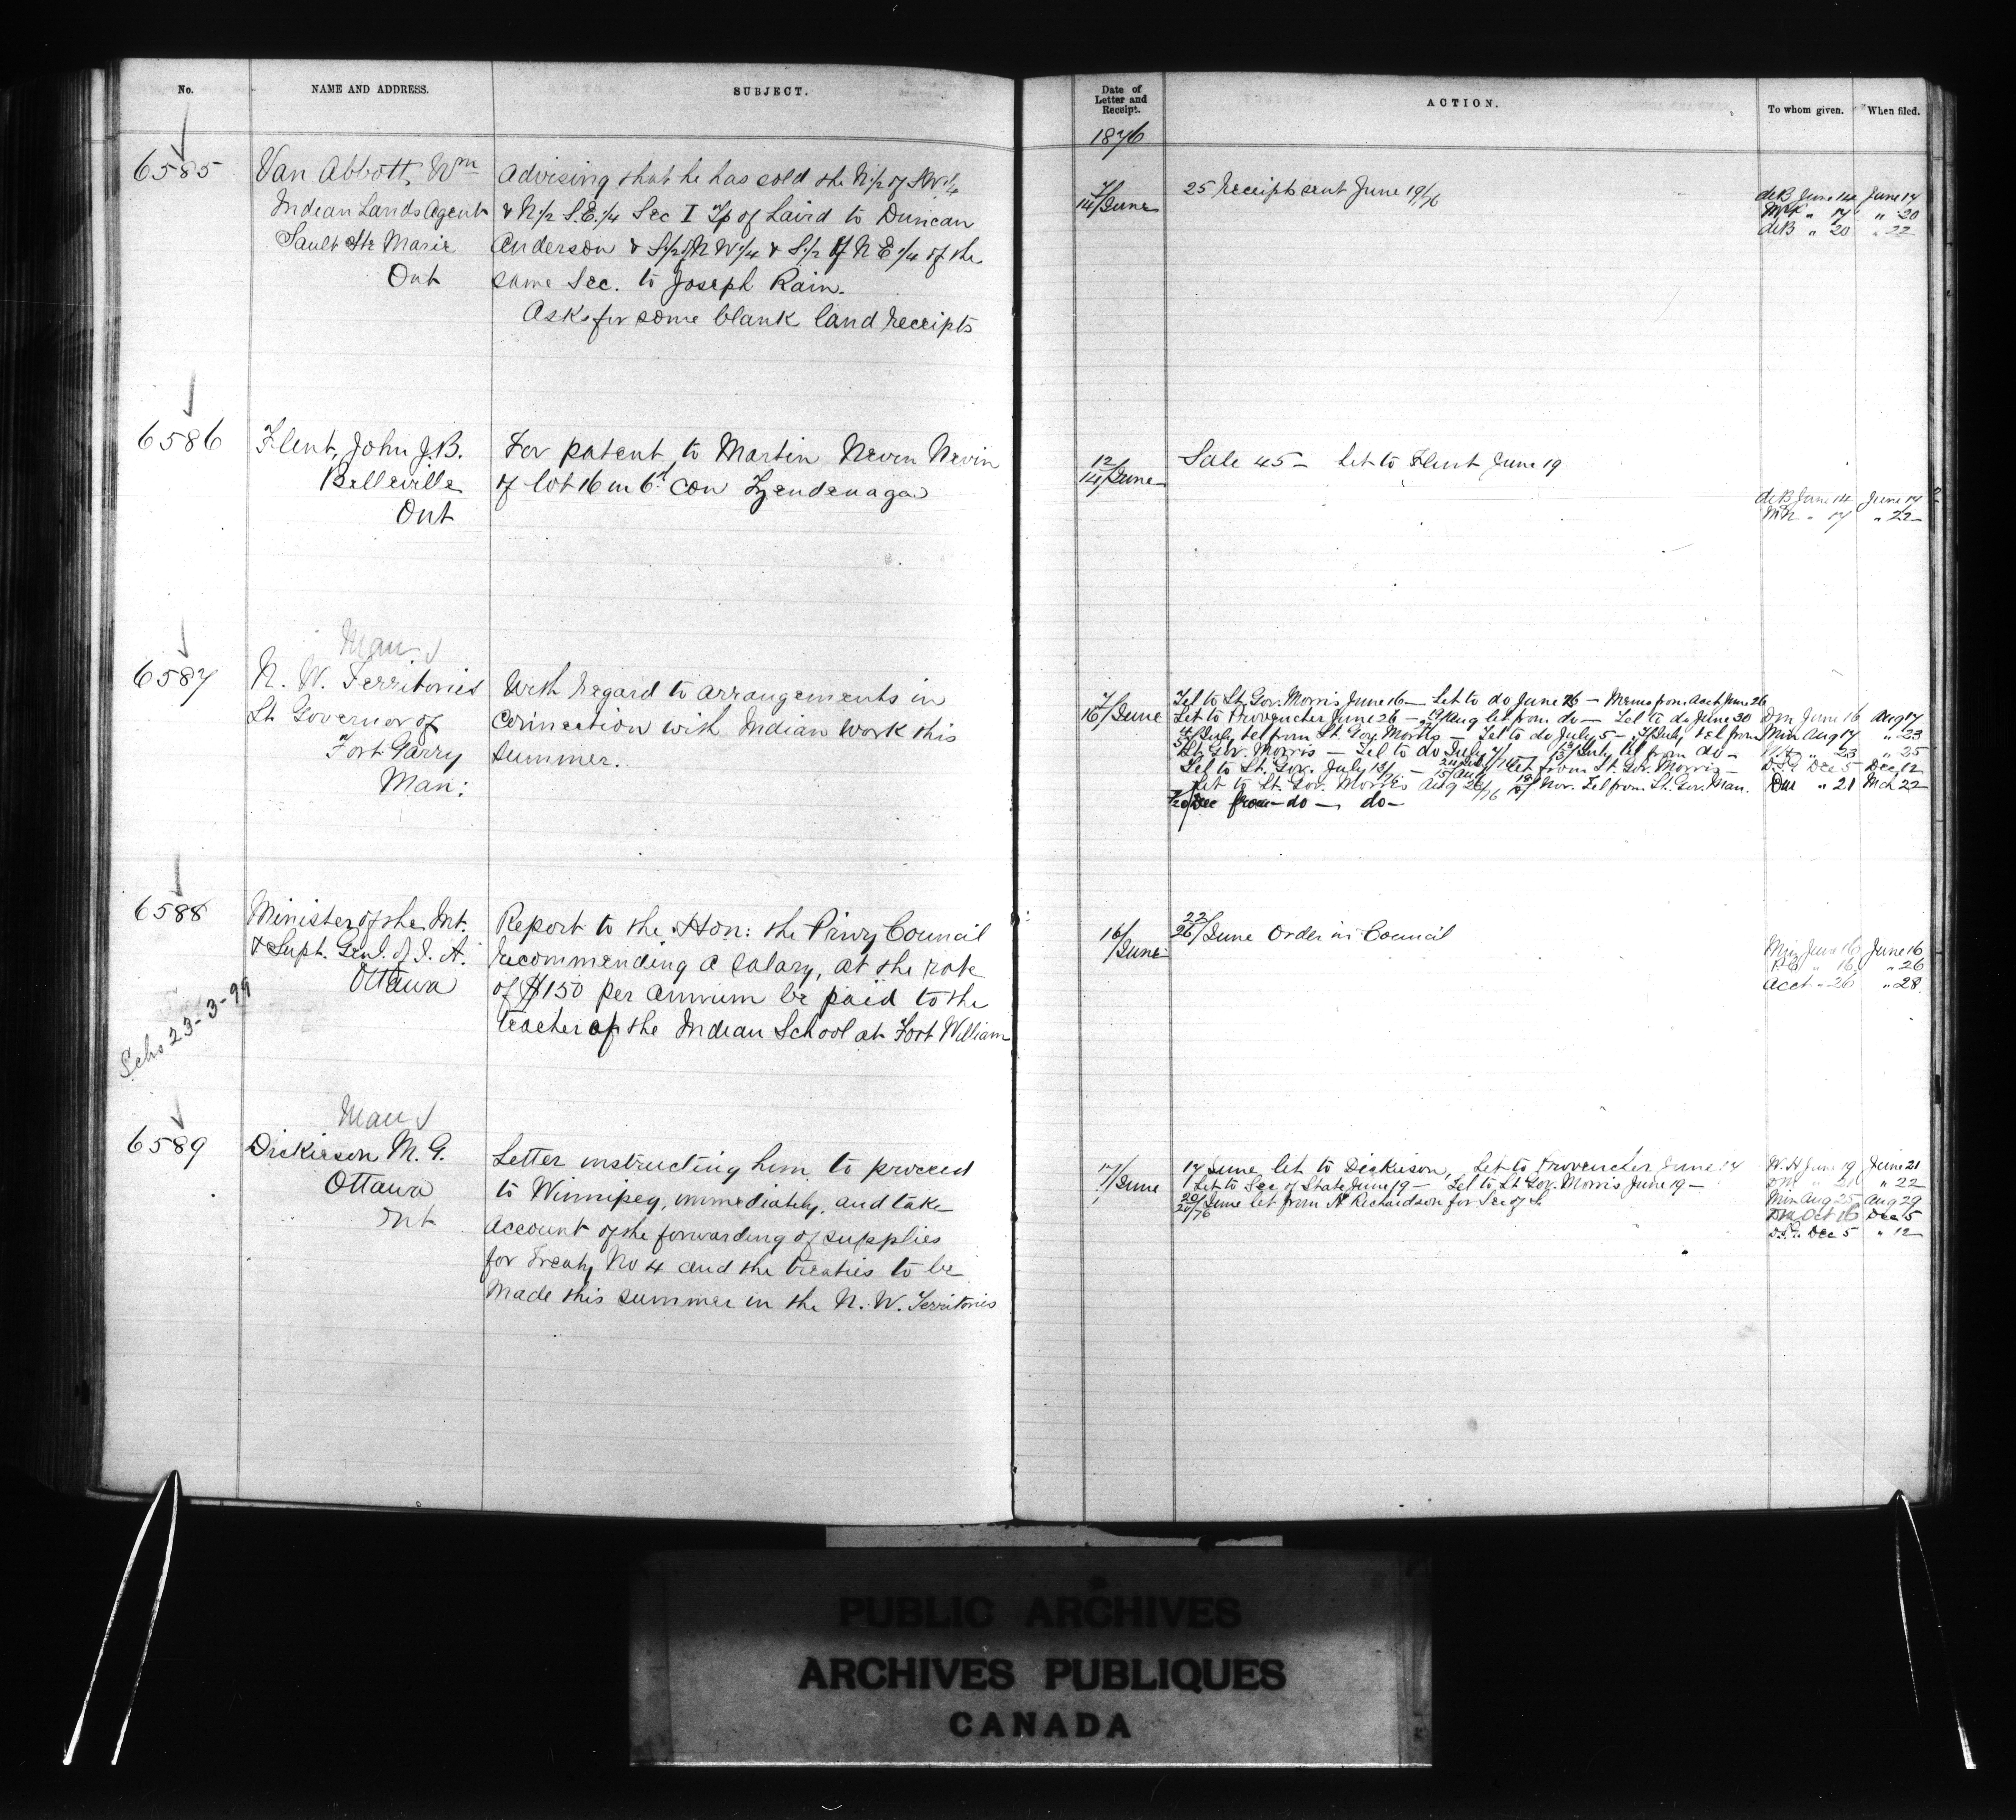 No.
NAME AND ADDRESS.
SUBJECT.
6585
Van Abbott, Wm
Indian Lands Agent
Sault Ste Marie
Ont
Advising that he has sold the N.1/2 of S.W.1/4
& N.1/2 S.E.1/4 Sec I Tp of Laird to Duncan
Anderson & S.1/2 N W.1/4 & S.1/2 of N E 1/4 of the
same Sec. to Joseph Rain.
Asks for some blank land receipts
6586
Flint, John J.B.
Belleville
Ont
For patent to Martin Nevin Nevin
of lot 16 in 6th con Tyendenaga
6587
Man
N. W. Territories
Lt Governor of
Fort Garry
Man:
With regard to arrangements in
connection with Indian work this
summer.
6588
Minister of the Int.
& Supt. Genl. of I. A.
Ottawa
Schs 23-3-99
Report to the Hon: the Privy Council
recommending a salary, at the rate
of $150 per annum be paid to the
teacher of the Indian School at Fort William
6589
Man
Dickieson M. G.
Ottawa
Ont
Letter instructing him to proceed
to Winnipeg, immediately, and take
account of the forwarding of supplies
for Treaty No 4 and the treaties to be
made this summer in the N. W. Territories
Date of
Letter and
Receipt.
ACTION.
To whom given.
When filed.
1876
7/
14/June
25 Receipts sent June 19/76
deB June 14 June 17
" 17 " 20
deB " 20 " 22
12/
14/June
Sale 45 - Let to Flint June 19
deB June 14 June 17
" 17 " 22
7/
16/June
Tel to Lt. Gov. Morris June 16 - Let to do June 26 - Memo from Acct June 26
Let to Provencher June 26 - Aug let from do - Tel to do June 30
July tel from Lt. Gov. Morris - Tel to do July 5 - July tel from
Lt. Gov. Morris - Tel to do July - 13/July tel from do -
Tel to Lt. Gov. July 13/76 - Let from Lt. Gov. Morris -
Let to Lt. Gov. Morris Aug /76 Nov. Tel from Lt. Gov. Man.
Dec from do - do -
June 16 Aug 17
Min Aug 17 " 23
" 23 " 25
Dec 5 Dec 12
" 21 Mch 22
16/
June
22/
26/June Order in Council
Min June 16 June 16
" 16 " 26
Acct " 26 " 28
17/June
17 June let to Dickieson, Let to Provencher June 17
Let to Sec of State June 19 - Tel to Lt Gov. Morris June 19 -
20/June let from Richardson for Sec of
W.H June 19 June 21
" 21 " 22
Min Aug 25 Aug 29
Oct 16 Dec 5
Dec 5 " 12
PUBLIC ARCHIVES
ARCHIVES PUBLIQUES
CANADA